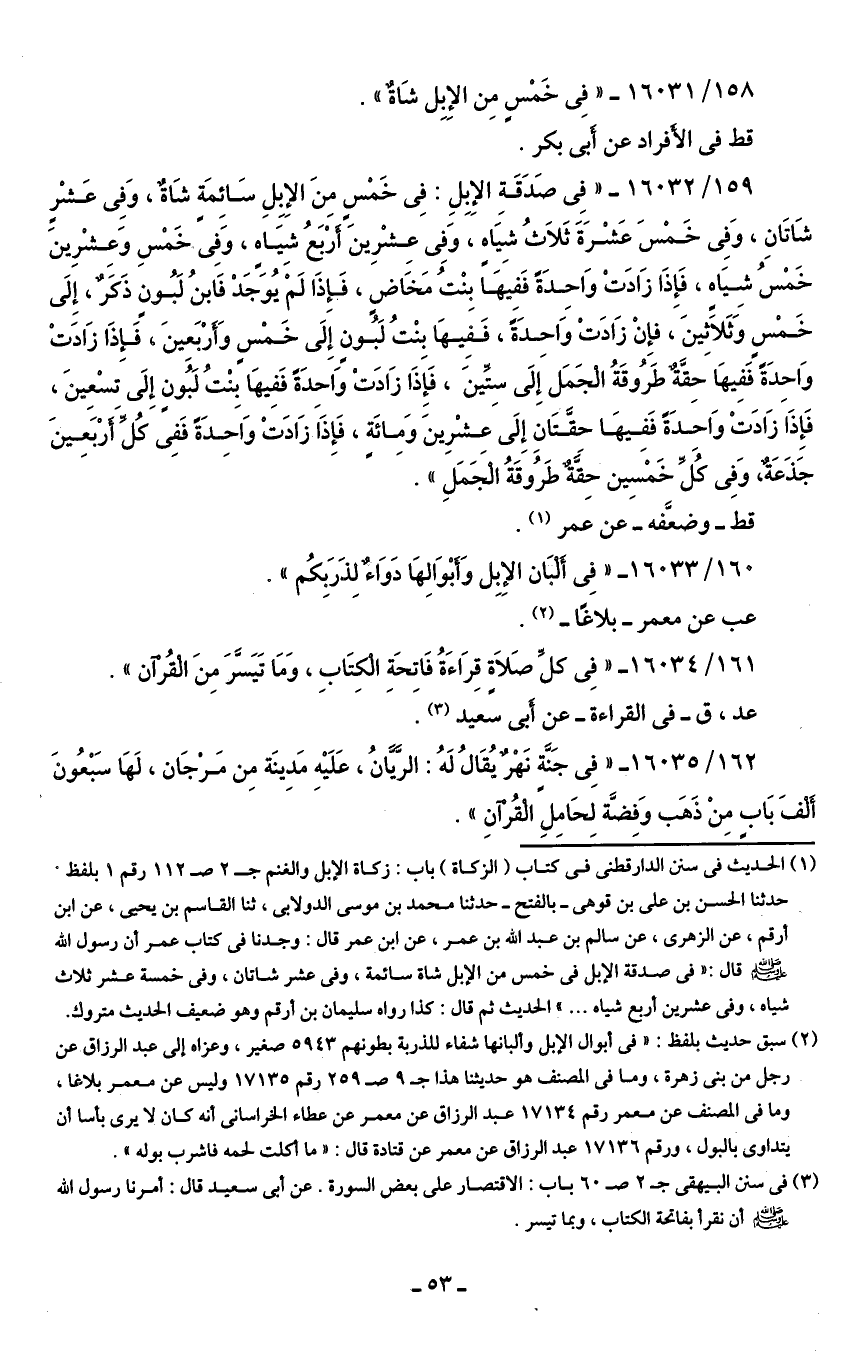 ١٥٨/ ١٦٠٣١ ـ « فِى خَمْسٍ مِن الإِبِل شَاةٌ » .
قط فى الأفراد عن أبى بكر .
١٥٩/ ١٦٠٣٢ ـ « فِى صَدَقَةِ الإِبِلِ : فِى خَمْسٍ مِنَ الإِبِلِ سَائِمَةٍ شَاةٌ ، وَفِى عَشْرٍ
شَاتَانِ ، وَفِى خَمْسَ عَشْرَةَ ثَلاَثُ شِيَاهٍ ، وَفِى عِشْرِينَ أَرْبَعُ شِيَاهٍ ، وَفِى خَمْسٍ وَعشْرِينَ
خَمْسُ شيَاه ، فَإِذَا زَادَتْ وَاحدَةً فَفيهَا بِنْتُ مَخَاضٍ ، فَإِذَا لَمْ يُوجَدْ فَابنُ لَبُونٍ ذَكَرٌ ، إِلَى
خَمْسٍ وَثَلاَثينَ ، فَإِنْ زَادَتْ وَاحدَةً ، فَفيهَا بِنْتُ لَبُونٍ إِلَى خَمْسٍ وَأَرْبَعينَ ، فَإِذَا زَادَتْ
وَاحدَةً فَفيهَا حقَّةٌ طَرُوقَةُ الْجَمَل إِلَى ستِّينَ ، فَإِذَا زَادَتْ وَاحدَةً فَفيهَا بِنْتُ لَبُونٍ إِلَى تسْعينَ ،
فَإِذَا زَادَتْ وَاحدَةً فَفيهَا حقَّتَان إِلَى عشْرِين وَمائَةٍ ، فَإِذَا زَادَتْ وَاحدَةً فَفى كُلِّ أَرْبَعينَ
جَذَعَةٌ، وَفِى كُلِّ خَمْسين حِقَّةٌ طَرُوقَةُ الْجَمَلِ » .
قط ـ وضعَّفه ـ عن عمر (١) .
١٦٠/ ١٦٠٣٣ـ « فِى أَلْبَان الإِبِل وَأَبْوَالِهَا دَوَاءٌ لِذَرَبِكُم » .
عب عن معمر ـ بلاغًا ـ (٢) .
١٦١/ ١٦٠٣٤ـ « فِى كلِّ صَلاَةٍ قِرَاءَةُ فَاتِحَةِ الْكِتَابِ ، وَمَا تَيَسَّرَ مِنَ الْقُرآن » .
عد ، ق ـ فى القراءة ـ عن أبى سعيد (٣) .
١٦٢/ ١٦٠٣٥ـ « فِى جَنَّةٍ نَهْرٌ يُقَالُ لَهُ : الرَّيَّانُ ، عَلَيْهِ مَدِينَة مِن مَرْجَان ، لَهَا سَبْعُونَ
أَلْفَ بَابٍ مِنْ ذَهَب وَفِضَّة لِحَامِلِ الْقُرآنِ » .
(١) الحديث فى سنن الدارقطنى فى كتاب ( الزكاة ) باب : زكاة الإبل والغنم جـ ٢ صـ ١١٢ رقم ١ بلفظ ٠
حدثنا الحسن بن على بن قوهى ـ بالفتح ـ حدثنا محمد بن موسى الدولابى ، ثنا القاسم بن يحيى ، عن ابن
أرقم ، عن الزهرى ، عن سالم بن عبد الله بن عمر ، عن ابن عمر قال : وجدنا فى كتاب عمر أن رسول الله
ﷺ قال :« فى صدقة الإبل فى خمس من الإبل شاة سائمة ، وفى عشر شاتان ، وفى خمسة عشر ثلاث
شياه ، وفى عشرين أربع شياه ... » الحديث ثم قال : كذا رواه سليمان بن أرقم وهو ضعيف الحديث متروك.
(٢) سبق حديث بلفظ : « فى أبوال الإبل وألبانها شفاء للذربة بطونهم ٥٩٤٣ صغير ، وعزاه إلى عبد الرزاق عن
رجل من بنى زهرة ، وما فى المصنف هو حديثنا هذا جـ ٩ صـ ٢٥٩ رقم ١٧١٣٥ وليس عن معمر بلاغا ،
وما فى المصنف عن معمر رقم ١٧١٣٤ عبد الرزاق عن معمر عن عطاء الخراسانى أنه كان لا يرى بأسا أن
يتداوى بالبول ، ورقم ١٧١٣٦ عبد الرزاق عن معمر عن قتادة قال : « ما أكلت لحمه فاشرب بوله » .
(٣) فى سنن البيهقى جـ ٢ صـ ٦٠ باب : الاقتصار على بعض السورة . عن أبى سعيد قال : أمرنا رسول الله
ﷺ أن نقرأ بفاتحة الكتاب ، وبما تيسر .
ـ ٥٣ ـ